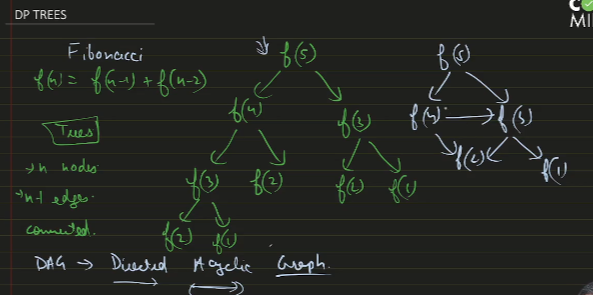 DP TREES
Fibonacci
f(n) = f(n-1) + f(n-2)
Trees
→ n nodes
→ n-1 edges.
connected.
f(5)
f(4) f(3)
f(3) f(2) f(2) f(1)
f(2) f(1)
f(5)
f(4) → f(3)
f(2) f(1)
DAG → Directed Acyclic Graph.